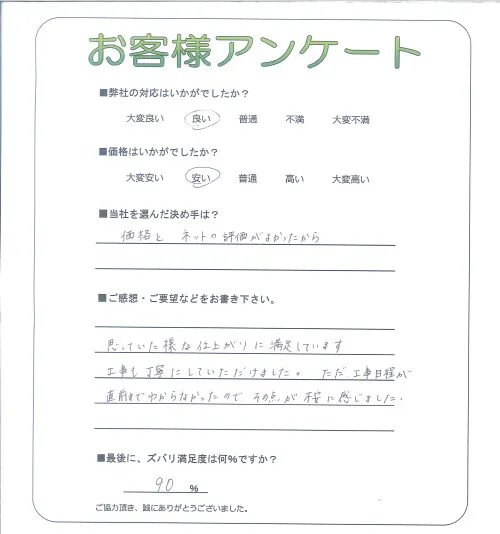 お客様アンケート
■弊社の対応はいかがでしたか？
大変良い 良い 普通 不満 大変不満
■価格はいかがでしたか？
大変安い 安い 普通 高い 大変高い
■当社を選んだ決め手は？
価格と ネットの評価がよかったから
■ご感想・ご要望などをお書き下さい。
思っていた様な仕上がりに満足しています
工事も丁寧にしていただけました。 ただ工事日程が
直前までわからなかったので、その点が不安に感じました。
■最後に、ズバリ満足度は何％ですか？
90 %
ご協力頂き、誠にありがとうございました。